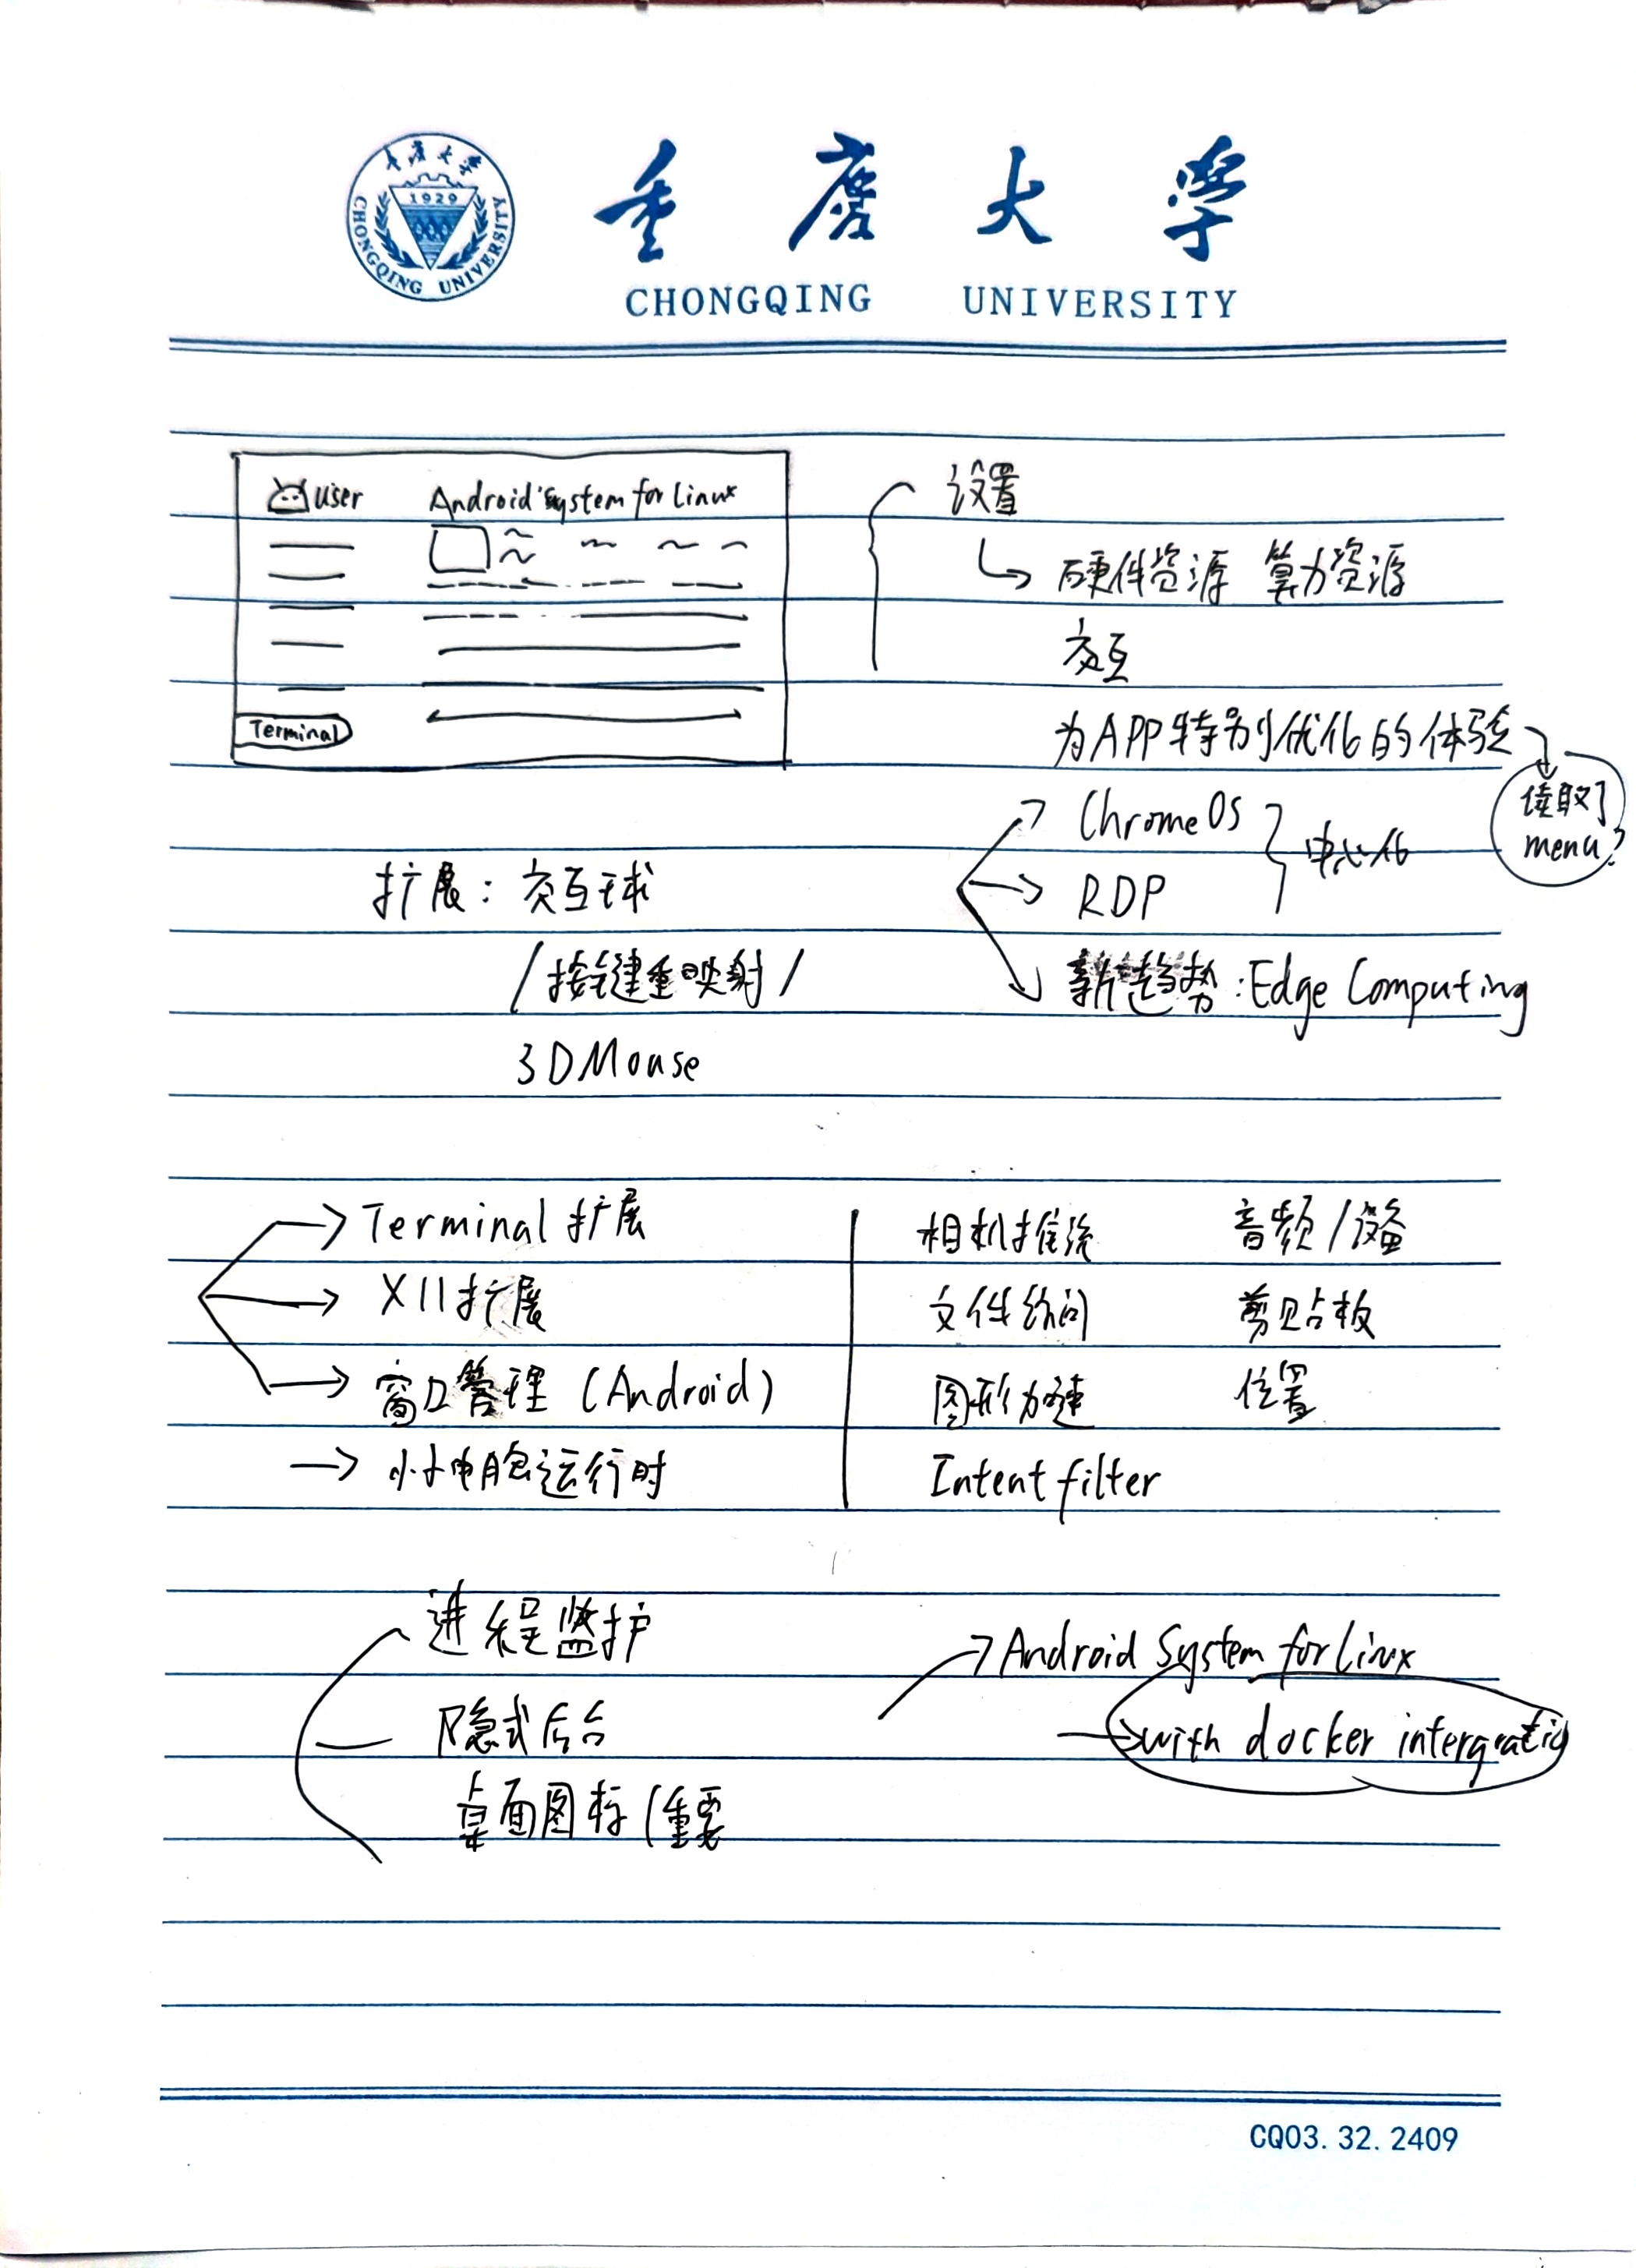 重庆大学
1929
CHONGQING UNIVERSITY
重庆大学
CHONGQING UNIVERSITY
user Android system for Linux
Terminal
设置
硬件资源 算力资源
交互
为APP特别优化的体验
读取了
menu?
ChromeOS
RDP
中心化
新趋势:Edge Computing
扩展:交互球
/按键重映射/
3DMouse
Terminal扩展
X11扩展
窗口管理(Android)
小电脑运行时
相机推流 音频/设备
文件访问 剪贴板
图形加速 位置
Intent filter
进程监护
隐式后台
桌面图标(重要
Android System for Linux
with docker intergratio
CQ03.32.2409